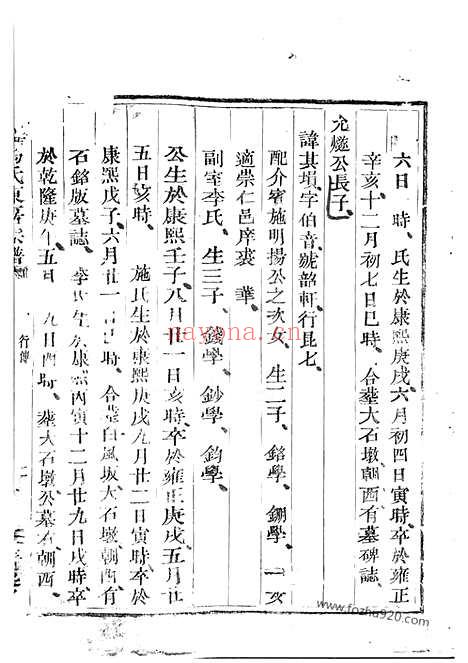 六日　時、氏生於康熙庚戌六月初四日寅時卒於雍正
辛亥十二月初七日巳時、合墓大石墩朝西有墓碑誌、
允燧公長子
諱其塤字伯音號韶軒行昆七
配介寮施明揚公之次女、生二子、銘學、鉶學、一女
適崇仁邑庠裘　華、
副室李氏、生三子、錢學、鈔學、鈞學、
公生於康熙壬子八月廿一日亥時卒於雍正庚戌五月廿
五日亥時、　施氏生於康熙庚戌九月廿二日寅時卒於
康熙戊子六月廿一日巳時、合墓白風坂大石墩朝西有
石銘版墓誌、　李氏生於康熙丙寅十二月廿九日戌時卒
於乾隆庚午五月　九日酉時、墓大石墩公墓右朝西、
氏東　宗譜
行傳
nayona.cn
www.fozhu920.com